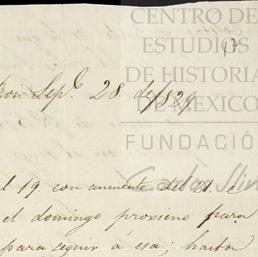 CENTRO DE
ESTUDIOS
DE HISTORIA
DE MEXICO
FUNDACIÓN
Carlos Slim
17
Sepe. 28 de 1829
el 19 con aumento del 21. e
el domingo proximo para
para seguir á esa; hasta